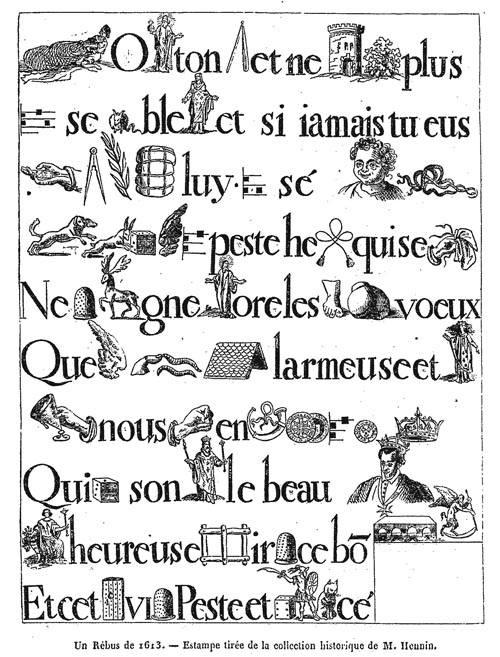 O ton et ne plus
se ble et si iamais tu eus
luy. sé
peste he quise
Ne gne ore les voeux
Que larmeuse et
nous en
Qui son le beau
heureuse ir ce bõ
Et cet vi Peste et cé
Un Rébus de 1613. — Estampe tirée de la collection historique de M. Hennin.